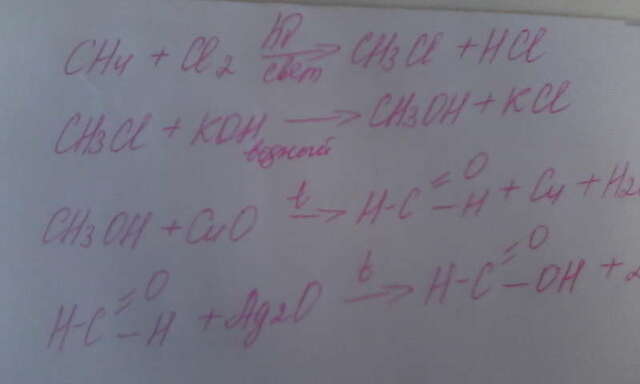 CH4 + Cl2 hν свет → CH3Cl + HCl
CH3Cl + KOH водный → CH3OH + KCl
CH3OH + CuO t → H-C =O -H + Cu + H2
H-C =O -H + Ag2O t → H-C =O -OH + 2